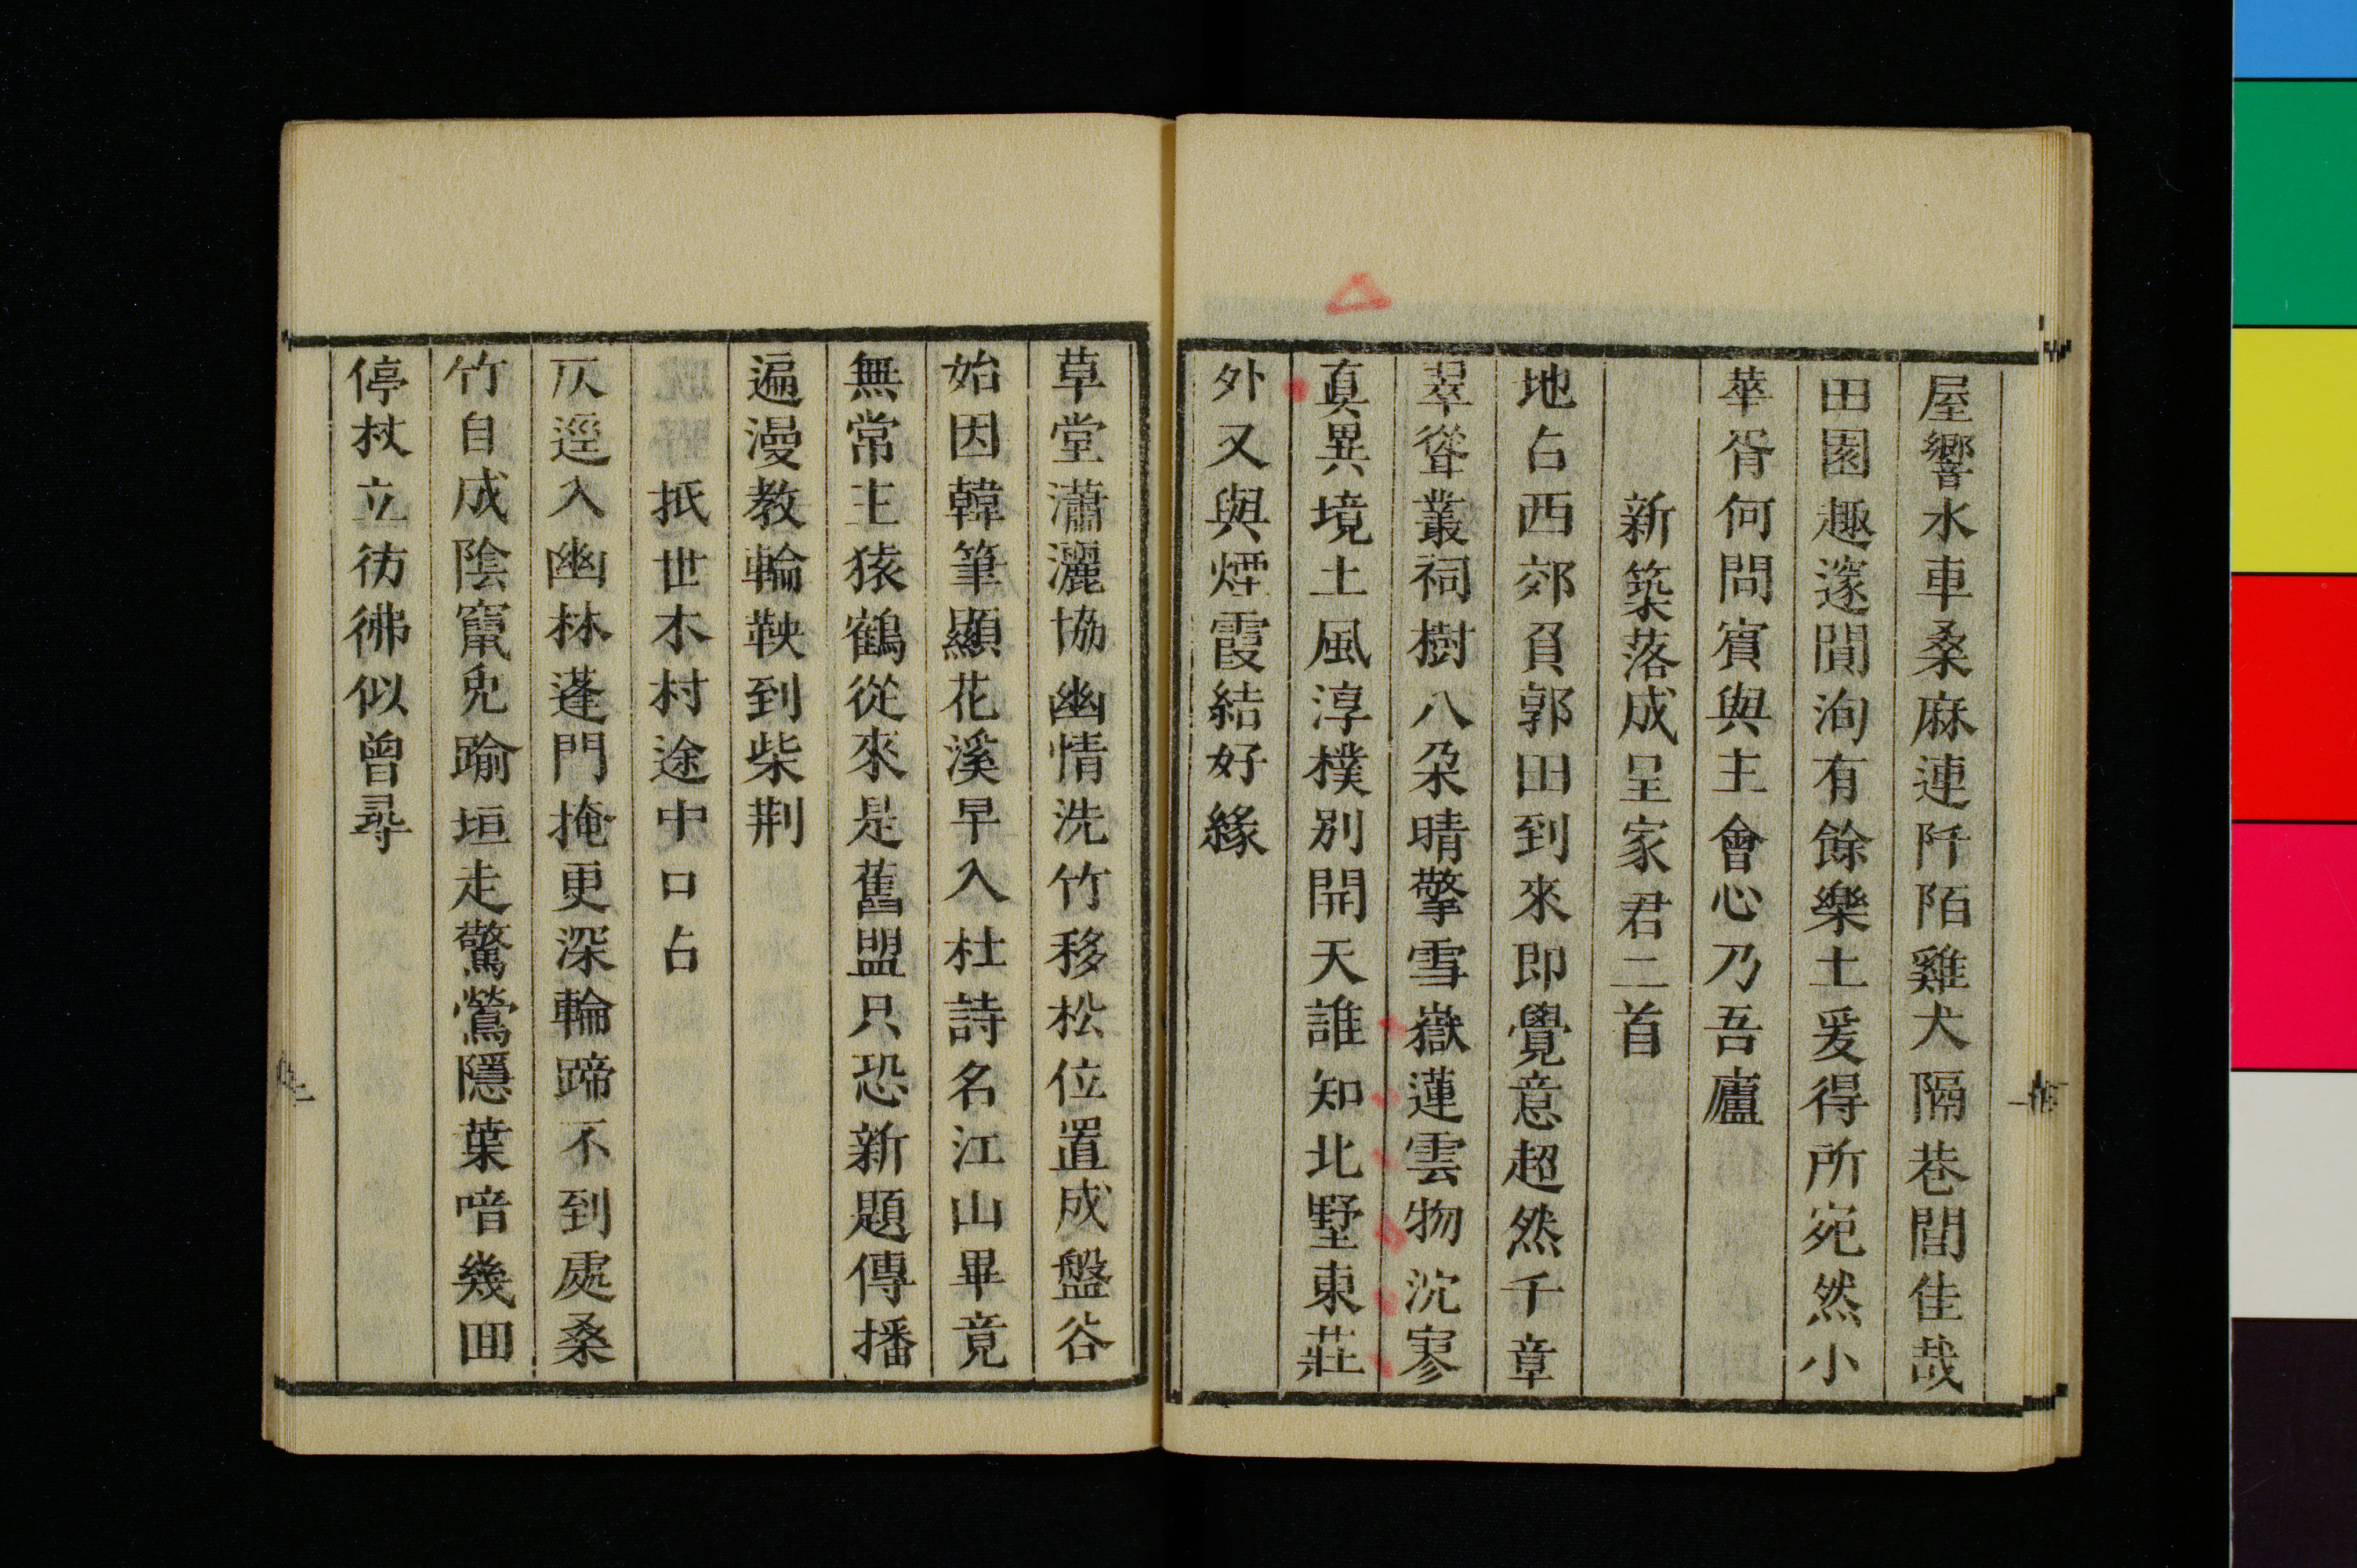 屋響水車桑麻連阡陌雞犬隔巷閭佳哉
田園趣邃閒洵有餘樂土爰得所宛然小
華胥何問賓與主會心乃吾廬
新築落成呈家君二首
地占西郊負郭田到來即覺意超然千章
翠聳叢祠樹八朶晴擎雪嶽蓮雲物沈寥
眞異境土風淳樸別開天誰知北墅東莊
外又與煙霞結好緣
草堂瀟灑協幽情洗竹移松位置成盤谷
始因韓筆顯花溪早入杜詩名江山畢竟
無常主猿鶴從來是舊盟只恐新題傳播
遍漫教輪鞅到柴荆
抵世木村途中口占
仄逕入幽林蓬門掩更深輪蹄不到處桑
竹自成陰竄兔踰垣走驚鶯隱葉喑幾回
停杖立彷彿似曾尋